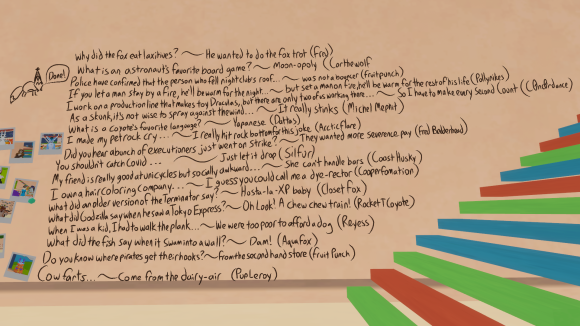 Done!
Why did the fox eat laxitives? ~ He wanted to do the fox trot (Fred)
What is an astronaut's favorite board game? ~ Moon-opoly (Corthewolf
Police have confirmed that the person who fell nightclub's roof... ~ was not a bouncer (fruitpunch)
If you let a man stay by a fire, he'll be warm for the night... ~ but set a man on fire, he'll be warm for the rest of his life (Pollynikes)
I work on a production line that makes toy Draculas, but there are only two of us working there... ~ So I have to make every second count
As a skunk, it's not wise to spray against the wind... ~ It really stinks (Michel Mephit)
What is a coyote's favorite language? ~ Yapanese (Dottos)
I made my pet rock cry... ~ I really hit rock bottom for this joke (Arcticflare)
Did you hear a bunch of executioners just went on Strike? ~ They wanted more severence pay (Fred Bolderbaud)
You shouldn't catch Covid... ~ Just let it drop (Silfur)
My friend is really good at unicycles but socially awkward... ~ She can't handle bars (Coast Husky)
I own a hair coloring company... ~ I guess you could call me a dye-rector (Cooperfornation)
what did an older version of the Terminator say? ~ Hasta-la-XP baby (Closet Fox)
what did Godzilla say when he saw a Tokyo Express? ~ Oh Look! A Chew chew train! (RocketCoyote)
When I was a kid, I had to walk the plank... ~ We were too poor to afford a dog (Reyess)
What did the fish say when it swam into a wall? ~ Dam! (Aquafox)
Do you know where pirates get their hooks? ~ from the second hand store (Fruit Punch)
Cow farts... ~ Come from the dairy-air (PupLeroy)